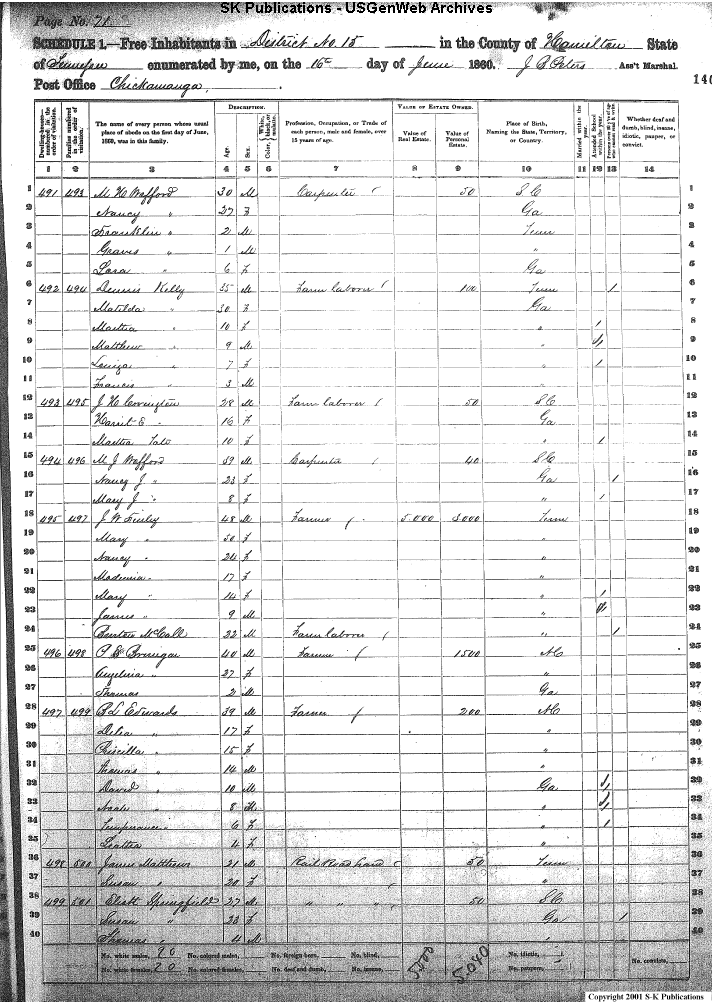 SK Publications - USGenWeb Archives
Page No. 71
SCHEDULE 1.—Free Inhabitants in District No. 15 in the County of Hamilton State
of Tennessee enumerated by me, on the 16 day of June 1860. J B Peters Ass't Marshal.
Post Office Chickamauga,
140
Dwelling-houses numbered in the order of visitation.
Families numbered in the order of visitation.
The name of every person whose usual place of abode on the first day of June, 1860, was in this family.
DESCRIPTION.
Age.
Sex.
Color, White, black, or mulatto.
Profession, Occupation, or Trade of each person, male and female, over 15 years of age.
VALUE OF ESTATE OWNED.
Value of Real Estate.
Value of Personal Estate.
Place of Birth, Naming the State, Territory, or Country.
Married within the year.
Attended School within the year.
Whether deaf and dumb, blind, insane, idiotic, pauper, or convict.
1 2 3 4 5 6 7 8 9 10 11 12 13 14
1 491 493 M H Wafford 30 M Carpenter 50 S C 1
2 Nancy " 27 F Ga 2
3 Franklin " 2 M Tenn 3
4 Graves " 1 M " 4
5 " 6 F Ga 5
6 492 494 Dennis Kelly 35 M Farm laborer 100 Tenn 1 6
7 Matilda " 30 F Ga 7
8 Martha " 10 F " 1 8
9 Matthew " 9 M " 1 9
10 " 7 F " 1 10
11 Francis " 3 M " 11
12 493 495 J H Covington 28 M Farm laborer 50 S C 12
13 Harriet E " 16 F Ga 13
14 Martha Tate 10 F " 1 14
15 494 496 M J Wafford 39 M Carpenter 40 S C 15
16 Nancy J " 23 F Ga 1 16
17 Mary J " 8 F " 1 17
18 495 497 J W Finley 48 M Farmer 5000 3000 Tenn 18
19 Mary " 50 F " 19
20 Nancy " 24 F " 20
21 " 17 F " 21
22 Mary " 14 F " 1 22
23 James " 9 M " 1 23
24 Burton McCall 22 M Farm laborer " 1 24
25 496 498 40 M Farmer 1500 N C 25
26 Angelina " 27 F " 26
27 Thomas 2 M Ga 27
28 497 499 B L Edwards 39 M Farmer 200 N C 28
29 Delia " 17 F " 29
30 Priscilla " 15 F " 30
31 Thomas " 14 M " 31
32 David " 10 M Ga 1 32
33 Noah " 8 M " 1 33
34 Temperance " 6 F " 1 34
35 " 4 F " 35
36 498 500 James Matthews 21 M Rail Road hand 50 Tenn 36
37 Susan " 20 F " 37
38 499 501 Eliott Springfield 27 M " " " 50 S C 38
39 Susan " 23 F Ga 1 39
40 Thomas " 4 M " 40
No. white males, 20 No. colored males, No. foreign born, No. blind, 5000 5040 No. idiotic, No. convicts,
No. white females, 20 No. colored females, No. deaf and dumb, No. insane, No. paupers,
Copyright 2001 S-K Publications